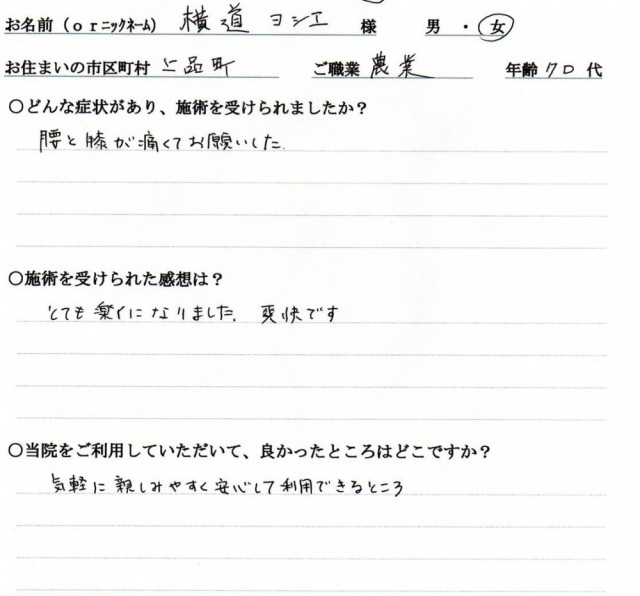 お名前（orニックネーム） 横道 ヨシエ 様 男・女
お住まいの市区町村 上品町 ご職業 農業 年齢 70 代
○どんな症状があり、施術を受けられましたか？
腰と膝が痛くてお願いした.
○施術を受けられた感想は？
とても楽になりました. 爽快です
○当院をご利用していただいて、良かったところはどこですか？
気軽に親しみやすく安心して利用できるところ